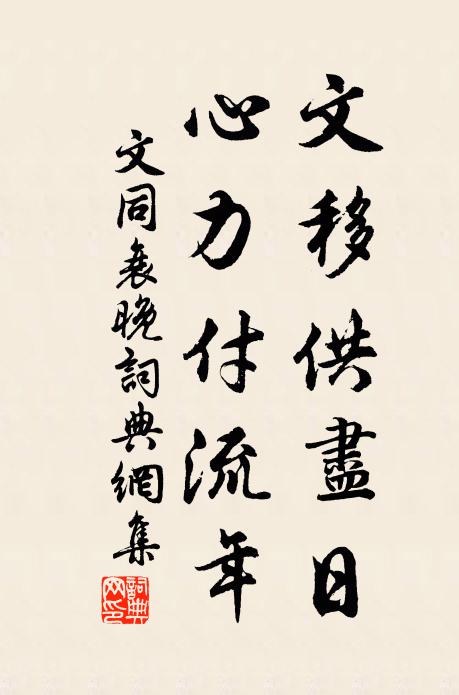 文移供盡日
心力付流年
文同衰晚詞典網集
詞典网印